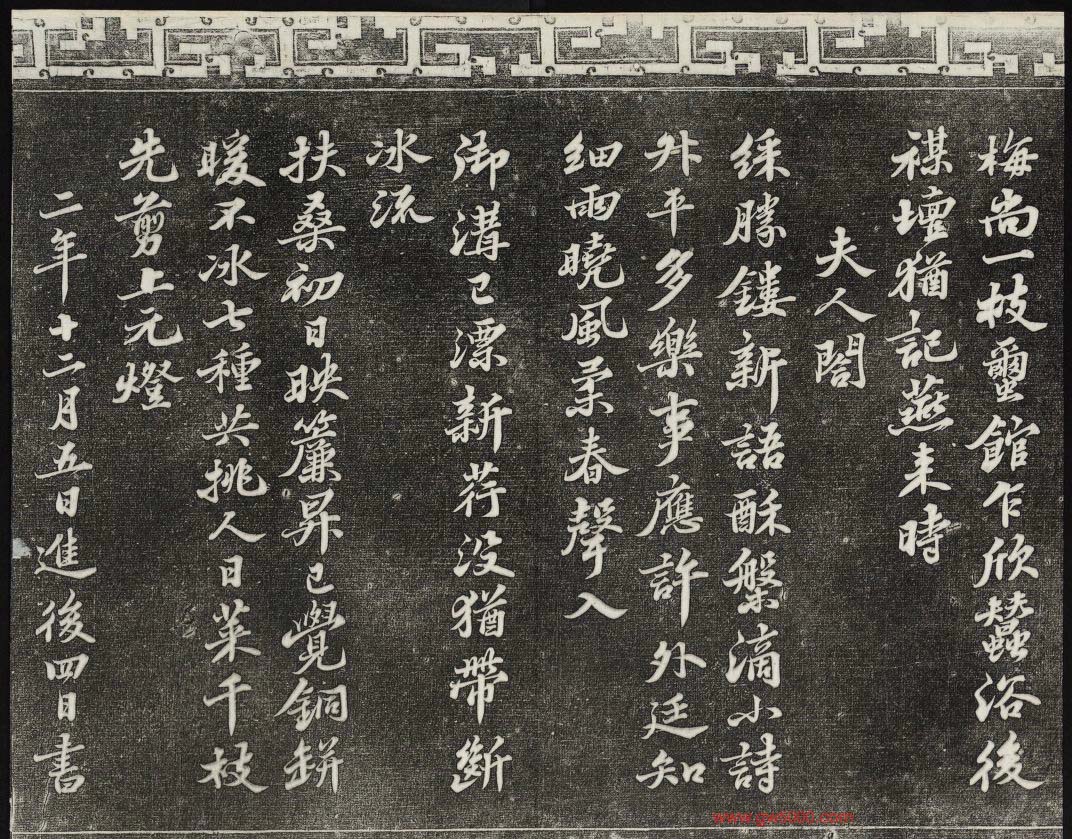 梅尚一枝蠒館乍欣蠶浴後
禖壇猶記燕来時
夫人閤
綵勝鏤新語酥槃滴小詩
升平多樂事應許外廷知
細雨曉風柔春聲入
御溝已漂新荇没猶帶斷
冰流
扶桑初日映簾昇已覺銅缾
暖不冰七種共挑人日菜千枝
先剪上元燈
二年十二月五日進後四日書